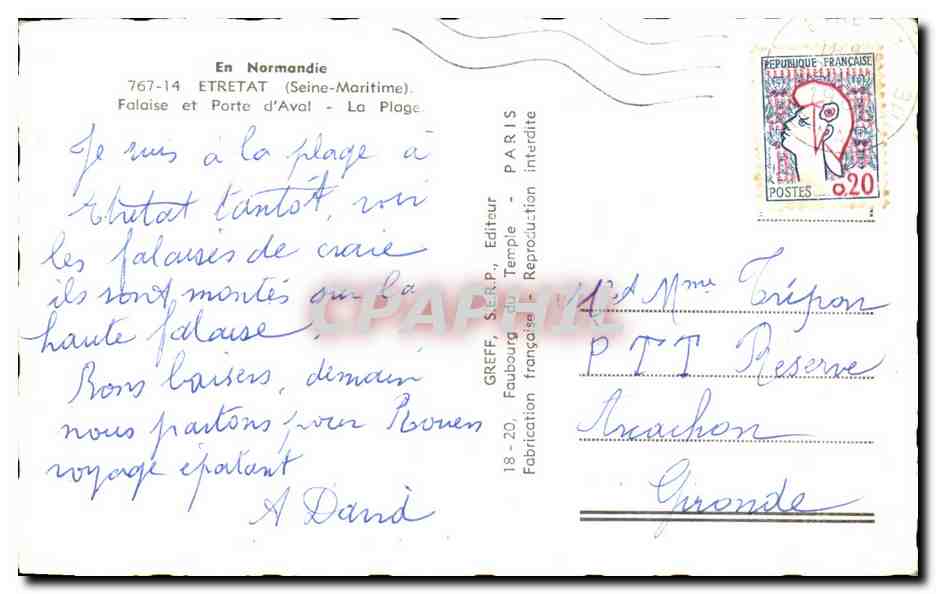 En Normandie
767-14 ETRETAT (Seine-Maritime).
Falaise et Porte d'Aval - La Plage.
Je suis à la plage à
Etretat tantôt, voir
les falaises de craie
ils sont montés sur la
haute falaise.
Bons baisers, demain
nous partons pour Rouen
voyage épatant
A David
GREFF, S.E.R.P., Editeur
18-20, Faubourg du Temple - PARIS
Fabrication française - Reproduction interdite
REPUBLIQUE FRANÇAISE
POSTES 0.20
Mr et Mme Trépon
PTT Reserve
Arcachon
Gironde
CPAPHIL